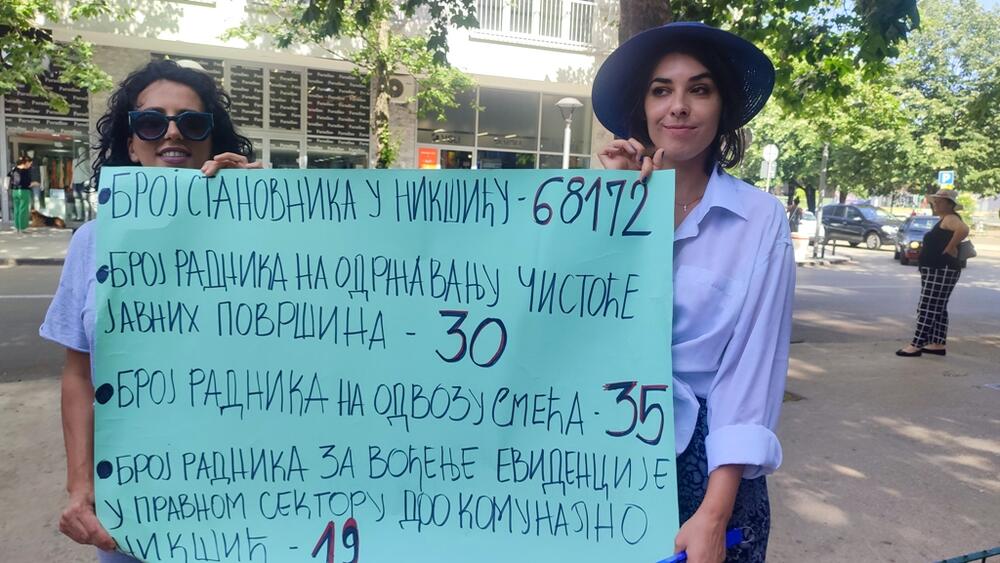 •БРОЈ СТАНОВНИКА У НИКШИЋУ - 68172
•БРОЈ РАДНИКА НА ОДРЖАВАЊУ ЧИСТОЋЕ
ЈАВНИХ ПОВРШИНА - 30
•БРОЈ РАДНИКА НА ОДВОЗУ СМЕЋА - 35
•БРОЈ РАДНИКА ЗА ВОЂЕЊЕ ЕВИДЕНЦИЈЕ
У ПРАВНОМ СЕКТОРУ ДОО КОМУНАЛНО
НИКШИЋ - 19
P